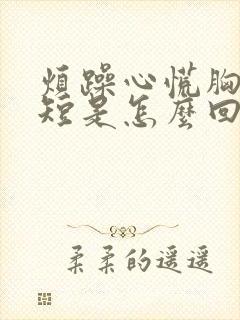 煩躁心慌胸
短是怎麼回
柔柔的遥遥